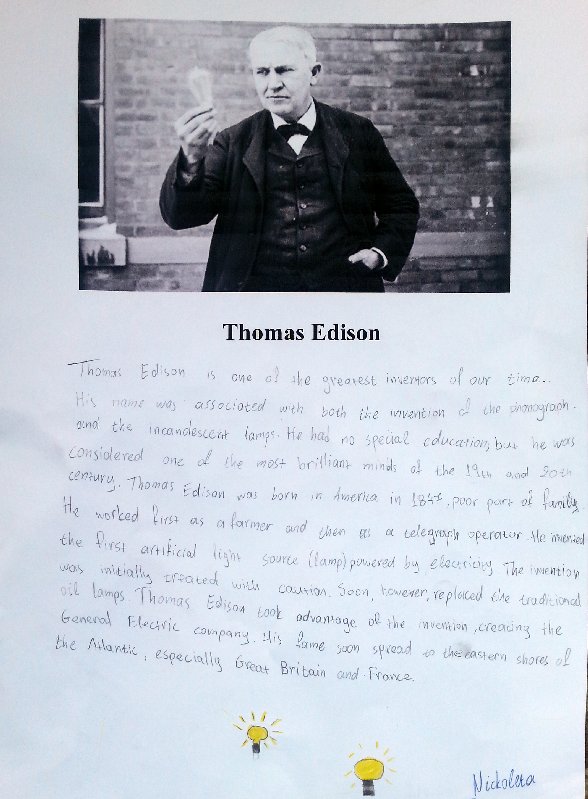 Thomas Edison
Thomas Edison is one of the greatest inventors of our time..
His name was associated with both the invention of the phonograph.
and the incandescent lamps. He had no special education, but he was
considered one of the most brilliant minds of the 19th and 20th
century. Thomas Edison was born in America in 1847, poor part of family
He worked first as a farmer and then as a telegraph operator. He invented
the first artificial light source (lamp) powered by electricity The invention
was initially treated with caution. Soon, however, replaced the traditional
oil lamps. Thomas Edison took advantage of the invention, creating the
General Electric company. His fame soon spread to the eastern shores of
the Atlantic, especially Great Britain and France.
Nickoleta